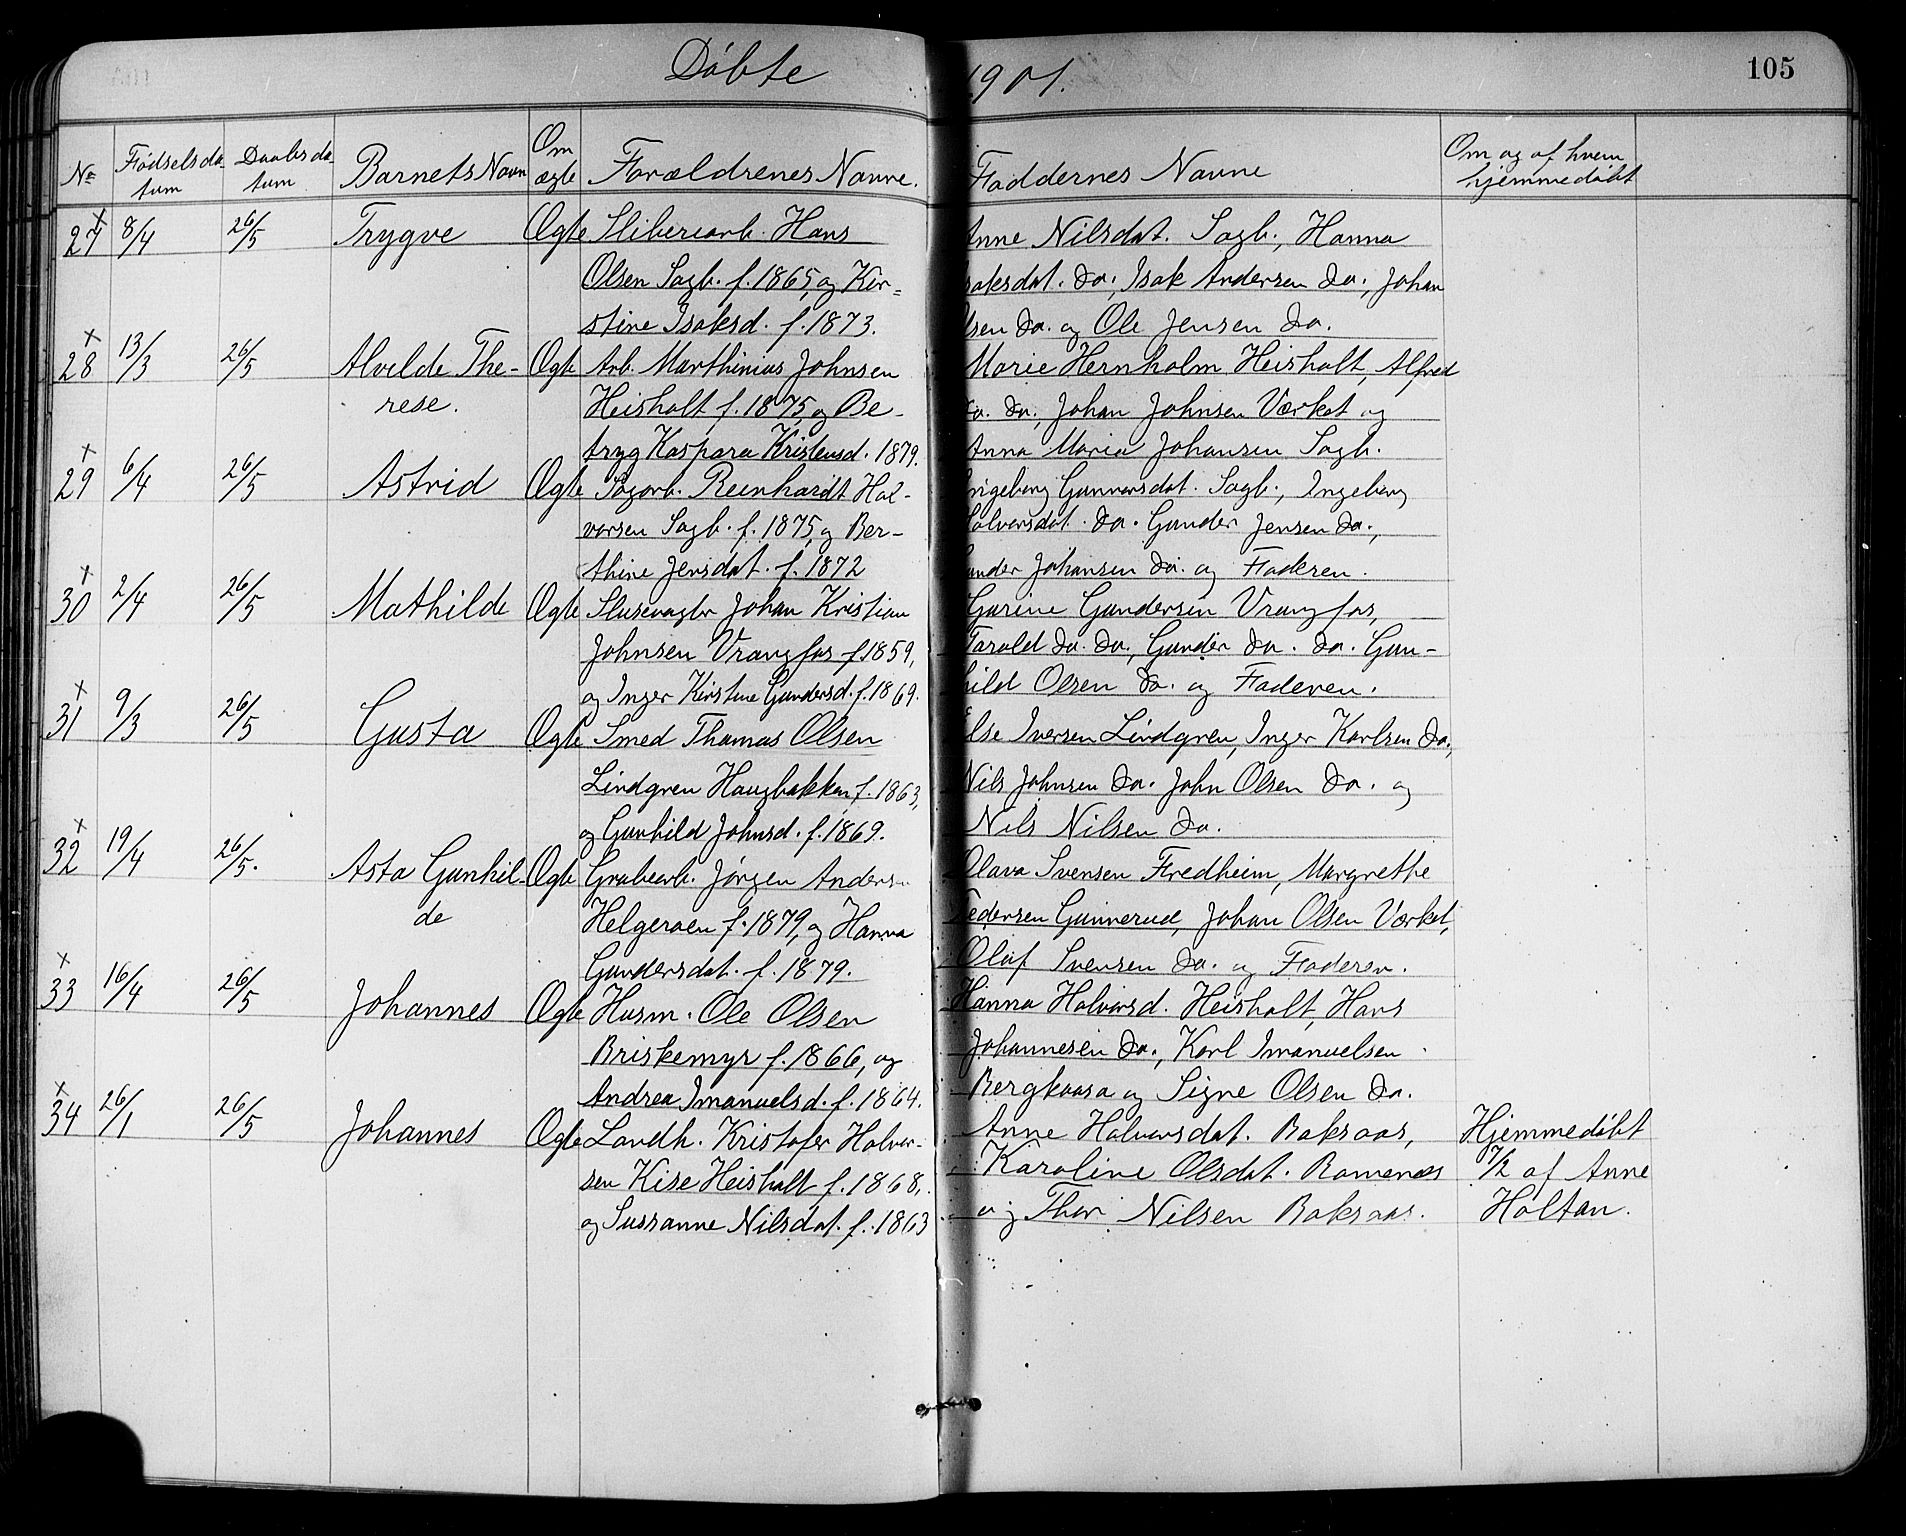 Døbte 1901.
105
No Fødselsda- Daabsda- Barnets Navn Om Forældrenes Navne. Faddernes Navne Om og af hvem
tum tum ægte hjemmedøbt
27 8/4 26/5 Trygve Ægte Sliberiarb. Hans
Olsen Sagb. f. 1865, og Kir=
stine Isaksd. f. 1873.
Anne Nilsdat. Sagb., Hanna
saksdat. do., Isak Andersen do., Johan
lsen do. og Ole Jensen do.
28 13/3 26/5 Alvilde The- Ægte Arb. Marthinius Johnsen
rese. Heisholt f. 1875, og Be-
tryg Kaspara Kristensd. 1879.
Marie Hernholm Heisholt, Alfred
do. do., Johan Johnsen Værket og
Anna Maria Johansen Sagb.
29 6/4 26/5 Astrid Ægte Sagarb. Reinhardt Hal-
vorsen Sagb. f. 1875, og Ber-
thine Jensdat. f. 1872
Ingeborg Gunnarsdat. Sagb., Ingeborg
Halvorsdat. do. Gunder Jensen do.,
under Johansen do. og Faderen.
30 2/4 26/5 Mathilde Ægte Slusevagter Johan Kristian
Johnsen Vrangfos f. 1859,
og Inger Kirstine Gundersd. f. 1869.
Gurine Gundersen Vrangfos,
Tarald do. do., Gunder do. do. Gun-
hild Olsen do. og Faderen.
31 9/3 26/5 Gusta Ægte Smed Thomas Olsen
Lindgren Haugbakken f. 1863,
og Gunhild Johnsd. f. 1869.
Else Iversen Lindgren, Inger Karlsen do.,
Nils Johnsen do. John Olsen do. og
Nils Nilsen do.
32 19/4 26/5. Asta Gunhil- Ægte Grubearb. Jørgen Anders
de Helgeraen f. 1879, og Hanna
Gundersdat. f. 1879.
Olava Svensen Fredheim, Margrethe
Pedersen Gunnerud, Johan Olsen Værket,
Olaf Svensen do. og Faderen.
33 16/4 26/5 Johannes Ægte Husm. Ole Olsen
Briskemyr f. 1866, og
Andrea Imanuelsd. f. 1864.
Hanna Halvorsd. Heisholt, Hans
Johannesen do., Karl Imanuelsen
Bergkaasa og Signe Olsen do.
34 26/1 26/5 Johannes Ægte Landh. Kristofer Halvor-
sen Kise Heisholt f. 1868,
og Sussanne Nilsdat. f. 1863
Anne Halvorsdat. Baksaas,
Karoline Olsdat. Romenæs
og Thor Nilsen Baksaas.
Hjemmedøbt
7/2 af Anne
Holtan.